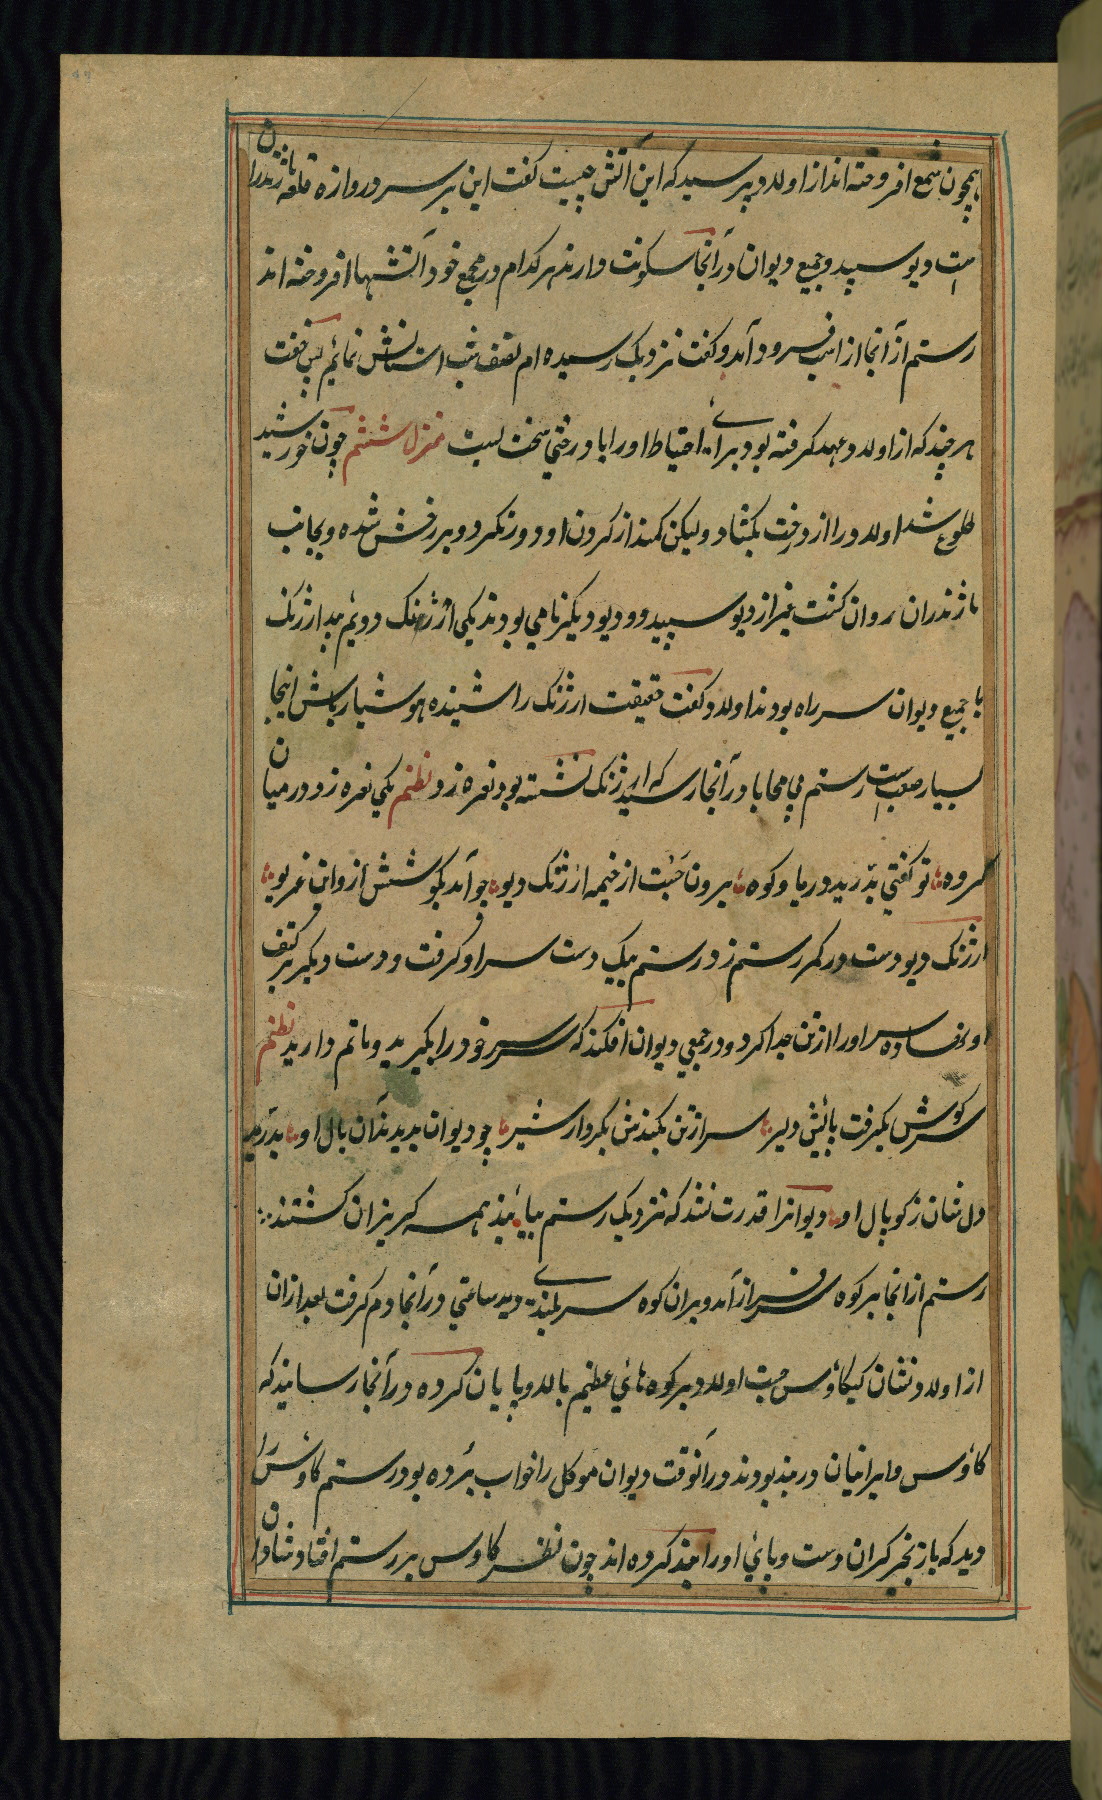 همچون شمع افروخته اند از اولاد و پرسید که این آتش چیست گفت این بر سر دروازه قلعه ماژندران
است دیو سپید و جمیع دیوان در آنجا سکونت دارند هر کدام در مجمع خود آتشها افروخته اند
رستم از آنجا از اسپ فرود آمد و گفت نزدیک رسیده ام نصف شب استایش نمائیم پس خفت
هر چند که از اولاد و عهد گرفته بود برای احتیاط او را با درختی سخت بست منزل ششم چون خورشید
طلوع شد اولاد و را از درخت بکشاد و لیکن کمند از گردن او دور نکرد و بر رخش شده و بجانب
ماژندران روان گشت غیر از دیو سپید دو دیو دیگر نامی بودند یکی ارژنگ دویم بید ارژنگ
با جمیع دیوان سر راه بودند اولاد و گفت حقیقت ارژنگ را شنیده هوشیار باش اینجا
بسیار صعب است رستم بی محابا در آنجا رسید که ارژنگ نشسته بود نعره زد نظم یکی نعره زد در میان
گروه تو گفتی بدرید دریا و کوه برون جست از خیمه ارژنگ دیو چو آمد بگوشش ازو این غریو
ارژنگ دیو دست در کمر رستم زد رستم بیک دست سر او گرفت و دست دیگر بر کتف
او نهاده سر او را از تن جدا کرد و در جمعی دیوان افکند که سر خود را بگیرید و ماتم دارید نظم
سر و گوش بگرفت یالش دلیر سر از تن بکندش بکردار شیر چو دیوان بدیدند آن یال او بدرید
دل شان ز کوپال او دیوانرا قدرت نشد که نزدیک رستم بیایند همه گریزان گشتند
رستم از انجا بر کوه سرفراز آمد و بران کوه سر بلندی دید ساعتی در آنجا دم گرفت بعد ازان
از اولاد و نشان کیکاؤس جست اولاد و بر کوه های عظیم بالا و پایان کرده در آنجا رسانید که
کاؤس و ایرانیان در بند بودند در آنوقت دیوان موکل را خواب برده بود رستم کاؤس را
دید که با زنجیر گران دست و پای او را بند کرده اند چون نظر کاوس بر رستم افتاد شادان